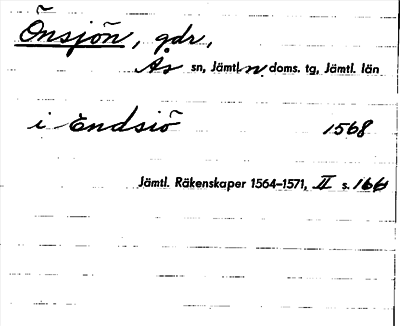 Önsjön, gdr,
Ås sn, Jämtl. n. doms. tg, Jämtl. län
i Endsiö 1568
Jämtl. Räkenskaper 1564–1571, II s. 166